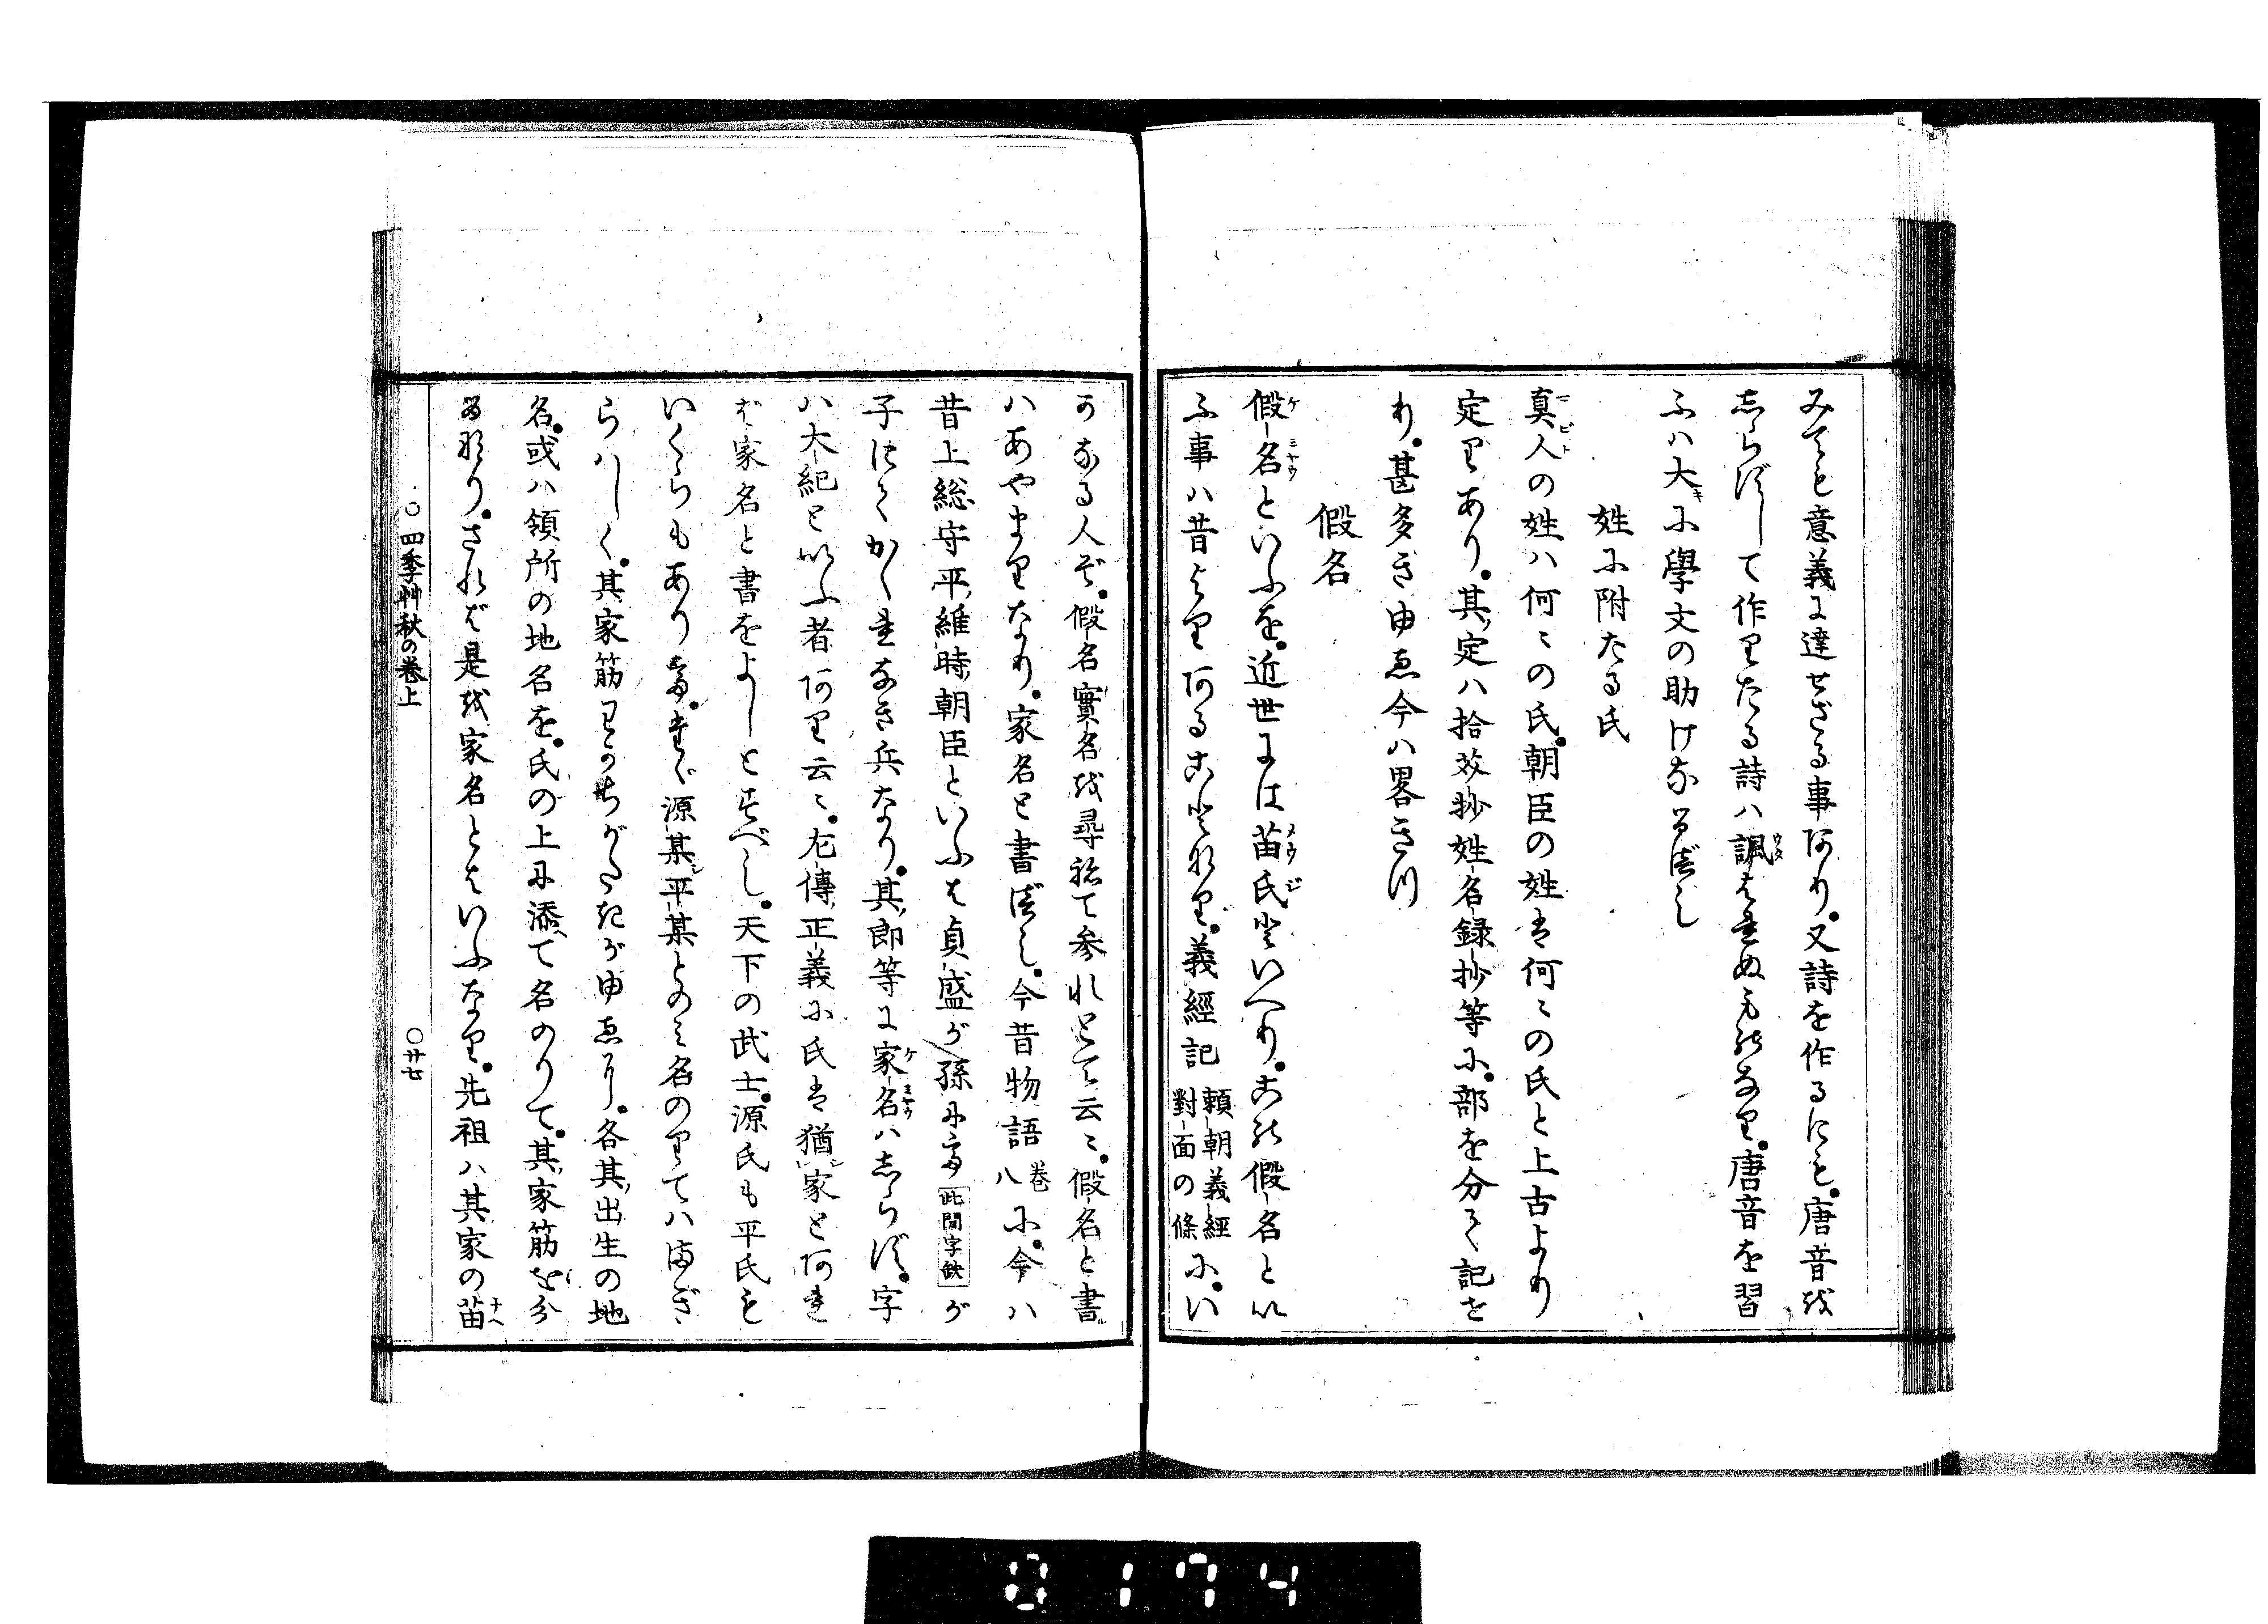 みても意義に達せざる事あり。又詩を作るにも。唐音を
しらずして作りたる詩ハ諷はれぬものなり。唐音を習
ふハ大キに學文の助けなるべし
姓に附たる氏
真人の姓ハ何〻の氏。朝臣の姓は何〻の氏と上古より
定りあり。其定ハ拾芥抄姓名録抄等に。部を分て記せ
り。甚多き由ゑ今ハ畧きつ
假名
假名といふを。近世には苗氏といへり。この假名とい
ふ事ハ昔よりあることなり。義經記頼朝義經對面の條に。い
かなる人ぞ。假名實名を尋ねて参れとて云〻。假名と書
ハあやまりなり。家名と書べし。今昔物語巻八に。今ハ
昔上総守平維時朝臣といふは貞盛が孫に 此間字缺 が
子にてかくれなき兵なり。其郎等に家名ハしらず。字
ハ大紀といふ者あり云〻。左傳正義に氏は猶家とあれ
ば家名と書をよしとすべし。天下の武士。源氏も平氏も
いくらもあり 源某平某とのみ名のりてハまぎ
らハしく。其家筋わかちがたきが由ゑに。各其出生の地
名。或ハ領所の地名を。氏の上に添て名のりて。其家筋を分
るなり。されば是を家名とはいふなり。先祖ハ其家の苗
○四季艸秋の巻上
○廿七
0174